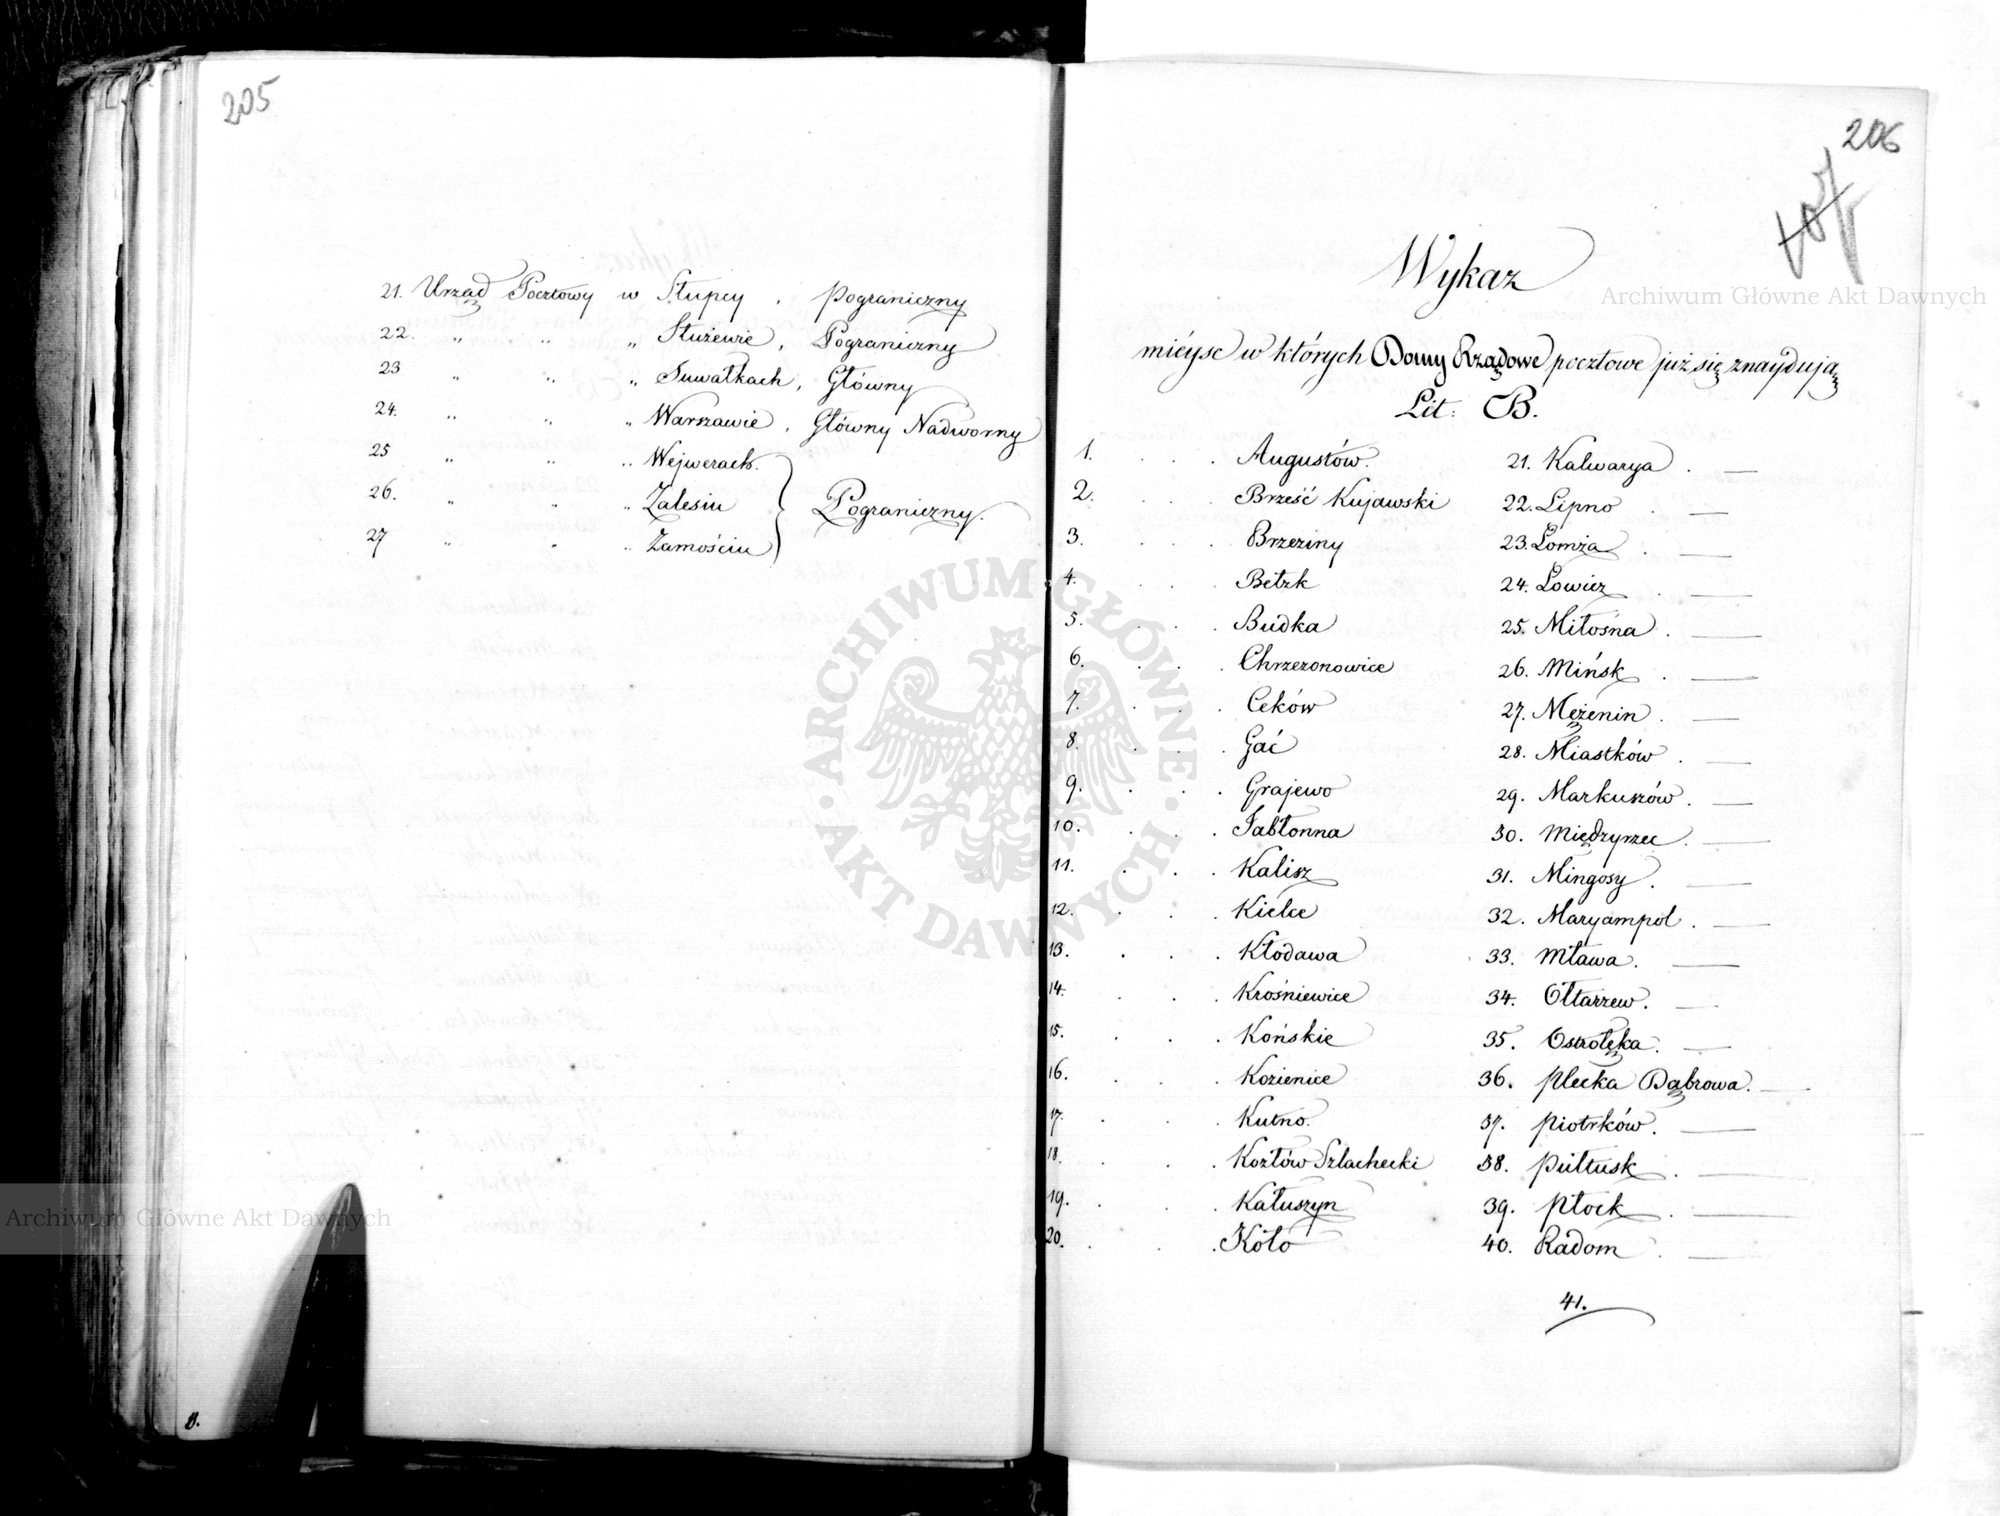 205
21. Urząd Pocztowy w Słupcy . pograniczny
22. " " " Służewie , Pograniczny
23 " " " Suwałkach, Główny
24. " " " Warszawie , Główny Nadworny
25 " " " Wejwerach.
26. " " " Zalesiu Pograniczny.
27 " " " Zamościu
8.
206
Wykaz
mieysc w których Domy Rządowe pocztowe już się znaydują
Lit: B.
1. . . . Augustów. 21. Kalwarya . —
2. . . . Brześć Kujawski 22. Lipno . —
3. . . . Brzeziny 23. Łomża . —
4. . . . Bełżk 24. Łowicz . —
5. . . . Budka 25. Miłosna . —
6. . . . Chrzczonowice 26. Mińsk . —
7. . . . Ceków 27. Mężenin . —
8. . . . Gać 28. Miastków . —
9. . . . Grajewo 29. Markuszów . —
10. . . . Jabłonna 30. Międzyrzec . —
11. . . . Kalisz 31. Mingosy . —
12. . . . Kielce 32. Maryampol . —
13. . . . Kłodawa 33. Mława . —
14. . . . Krośniewice 34. Ołtarzew . —
15. . . . Końskie 35. Ostrołęka . —
16. . . . Kozienice 36. Plecka Dąbrowa . —
17. . . . Kutno. 37. Piotrków . —
18. . . . Kozłów Szlachecki 38. Pułtusk . —
19. . . . Kałuszyn 39. Płock . —
20. . . . Koło 40. Radom . —
41.
Archiwum Główne Akt Dawnych
Archiwum Główne Akt Dawnych
ARCHIWUM GŁÓWNE · AKT DAWNYCH ·